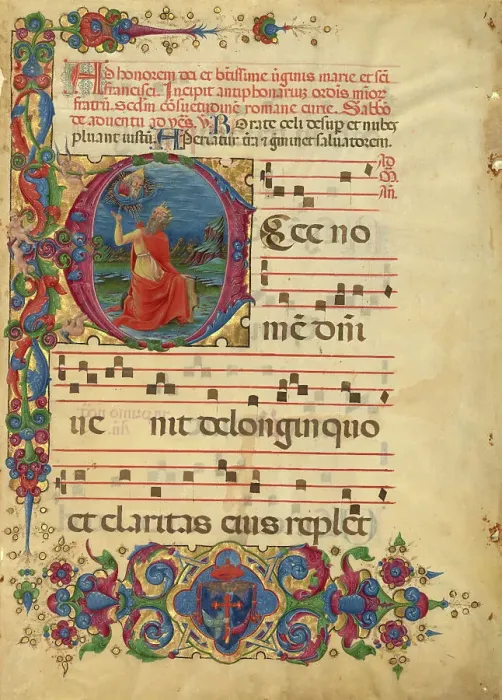 Ad honorem dei et btissime uginis marie et sci
francisci. Incipit antiphonarius ordis mior
fratru. Scdm cosuetudine romane curie. Sabbo
de aduentu ad ves. V R Orate celi desup et nubes
pluant iustu. Aperiatur tra et gminet saluatorem.
Ad
An.
Ecce no
me dni
ue nit delonginquo
et claritas eius replet